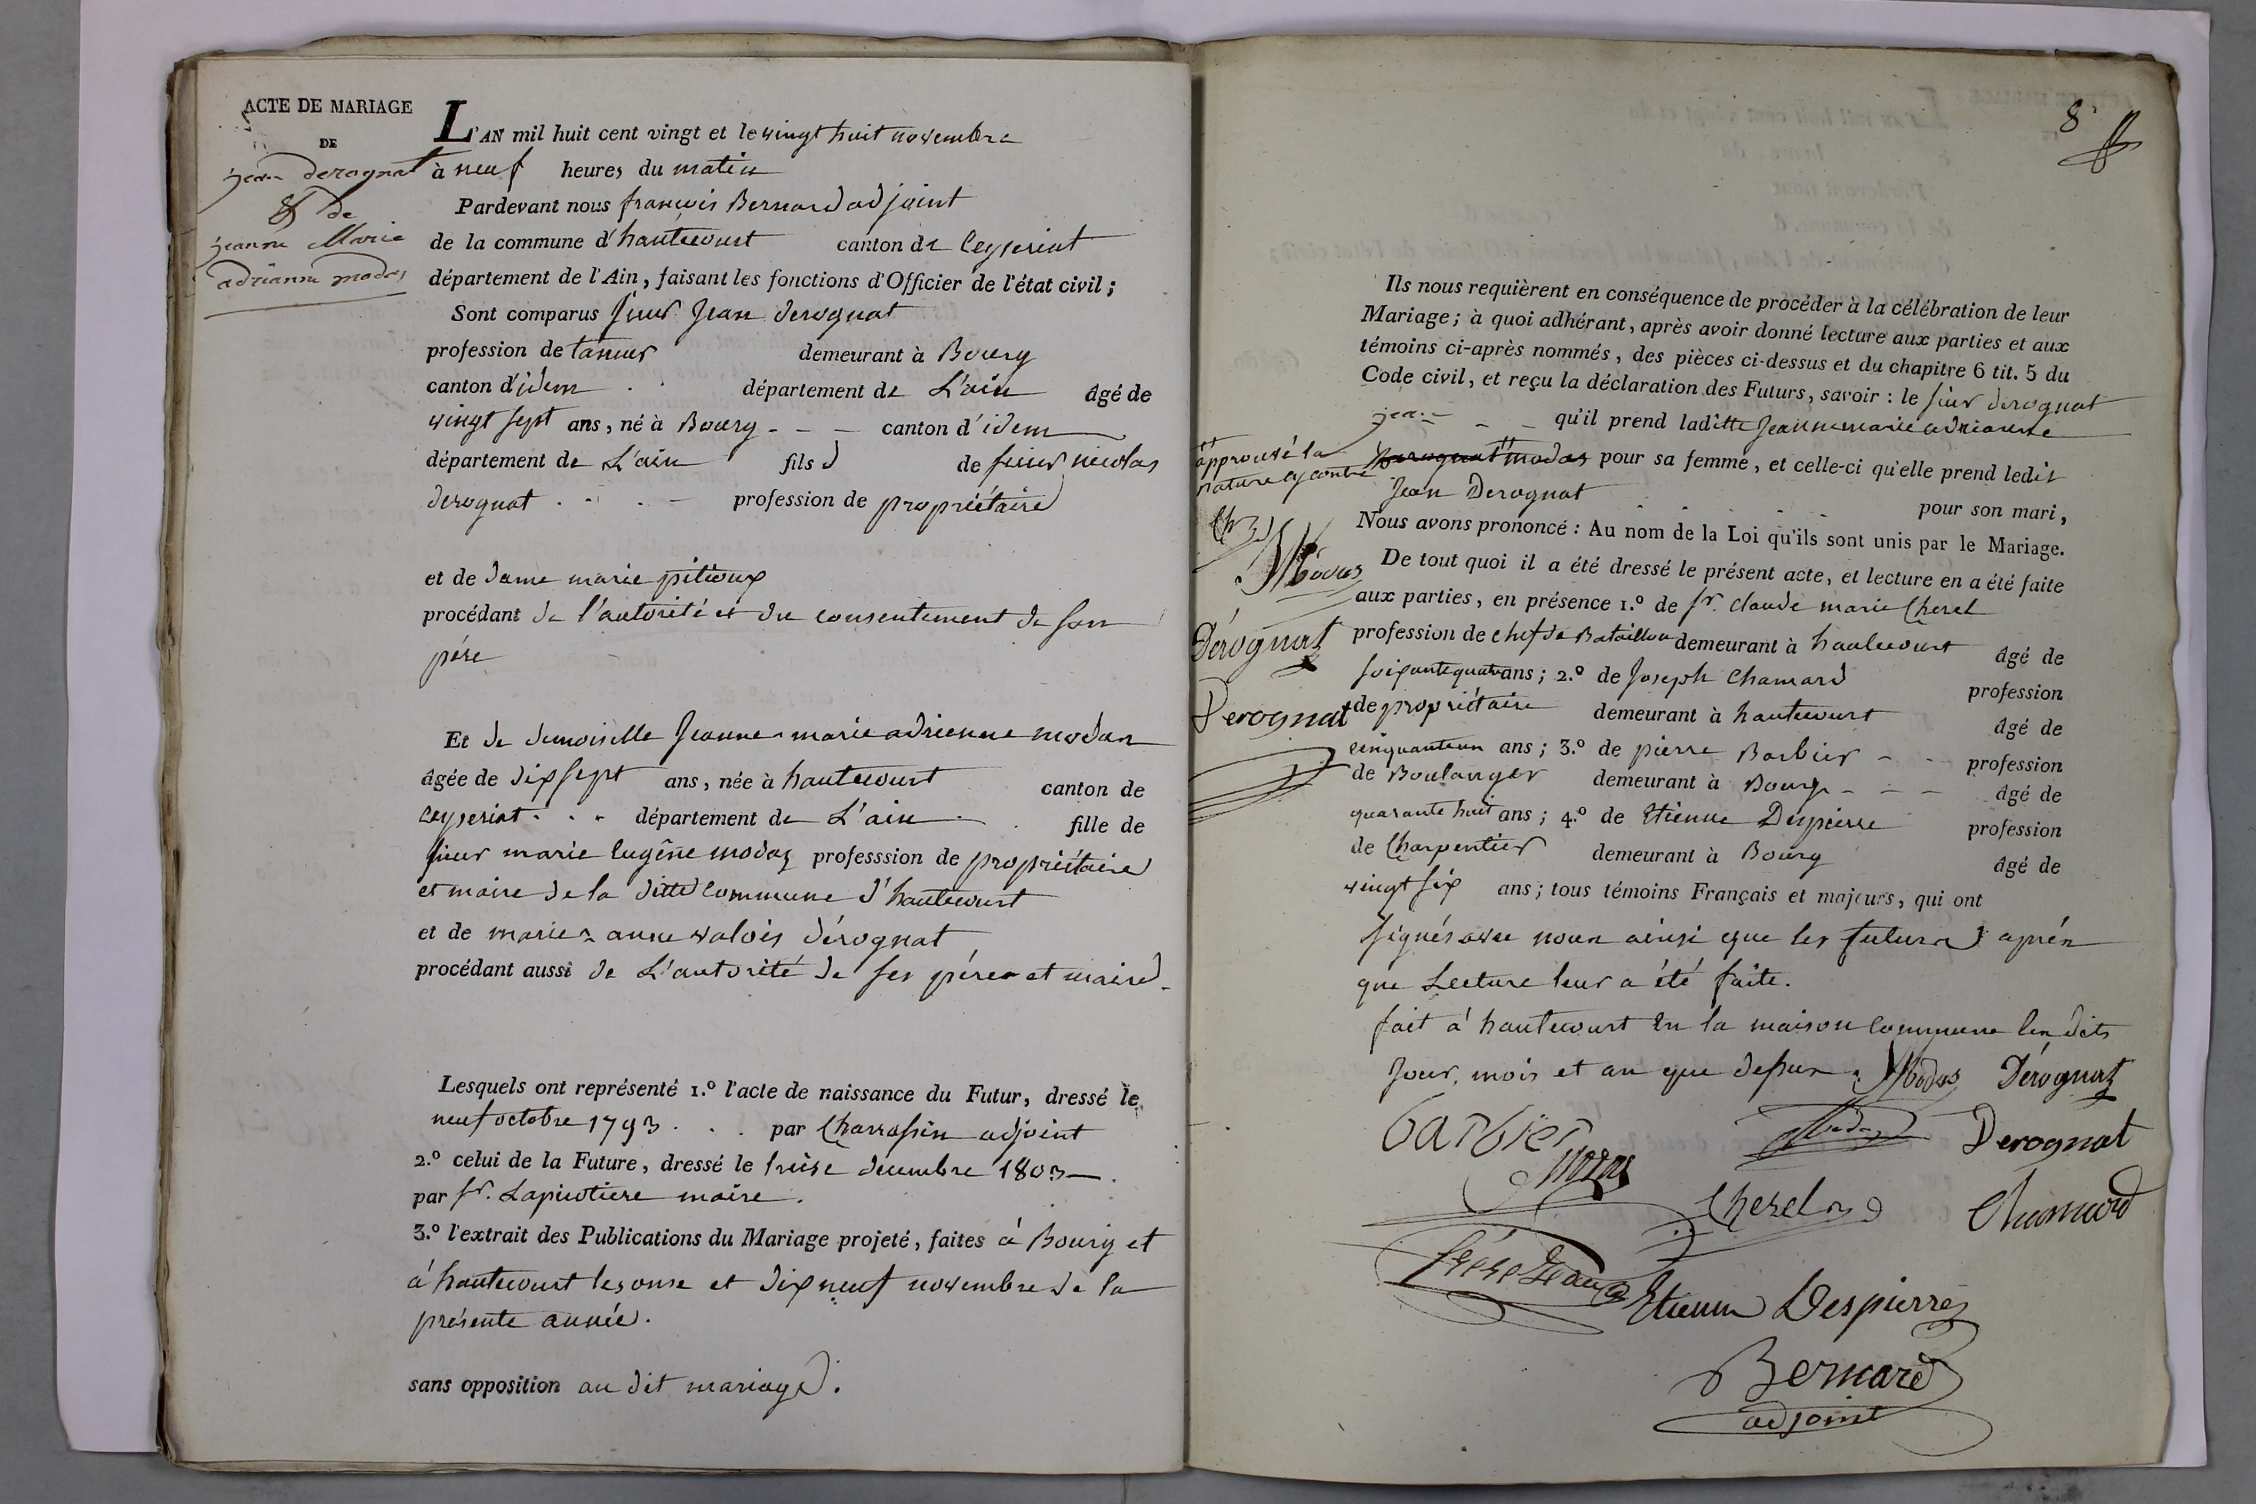 ACTE DE MARIAGE
DE
jean derognat
& de
jeanne Marie
adrianne modas
L'AN mil huit cent vingt et le vingt huit novembre
à neuf heures du matin
Pardevant nous françois Bernard adjoint
de la commune d'hautecourt canton de Ceyseriat
département de l'Ain, faisant les fonctions d'Officier de l'état civil ;
Sont comparus sieur Jean derognat
profession de taneur demeurant à Bourg
canton d'idem département de L'ain âgé de
vingt sept ans, né à Bourg canton d'idem
département de L'ain fils de sieur nicolas
derognat profession de propriétaire
et de dame marie pitioux
procédant de l'autorité et du consentement de son
père
Et de demoiselle Jeanne-marie adrienne modas
âgée de dix sept ans, née à hautecourt canton de
Ceyseriat département de L'ain fille de
sieur marie Eugêne modas professsion de propriétaire
et maire de la ditte commune d'hautecourt
et de marie-anne valois dérognat
procédant aussi de L'autorité de ses péres et maire
Lesquels ont représenté 1.º l'acte de naissance du Futur, dressé le
neuf octobre 1793 par Charrassin adjoint
2.º celui de la Future, dressé le treise decembre 1803
par sr. Lapicotiere maire.
3.º l'extrait des Publications du Mariage projeté, faites à Bourg et
à hautecourt les onse et dix neuf novembre de la
présente année.
sans opposition au dit mariage.
8
Ils nous requièrent en conséquence de procéder à la célébration de leur
Mariage ; à quoi adhérant, après avoir donné lecture aux parties et aux
témoins ci-après nommés, des pièces ci-dessus et du chapitre 6 tit. 5 du
Code civil, et reçu la déclaration des Futurs, savoir : le sieur derognat
jean qu'il prend ladîtte Jeanne marie adrianne
derognat modas pour sa femme, et celle-ci qu'elle prend ledit
Jean Derognat pour son mari,
Nous avons prononcé : Au nom de la Loi qu'ils sont unis par le Mariage.
De tout quoi il a été dressé le présent acte, et lecture en a été faite
aux parties, en présence 1.º de sr. claude marie Cherel
profession de chef de Bataillon demeurant à hautecourt âgé de
soixante quatre ans ; 2.º de Joseph Chamard profession
de propriétaire demeurant à hautecourt âgé de
cinquante un ans ; 3.º de pierre Barbier profession
de Boulanger demeurant à Bourg âgé de
quarante huit ans ; 4.º de Etienne Despierre profession
de Charpentier demeurant à Bourg âgé de
vingt six ans ; tous témoins Français et majeurs, qui ont
signés avec nous ainsi que les futurs aprés
que Lecture leur a été faite.
fait à hautecourt En la maison Commune les dits
Jour, mois et an que dessus.
approuvé la
rature cy contre
Modas
Dérognat
Derognat
Modas Dérognat
barbier Derognat
Cherel Chamard
Etienne Despierres
Bernard
adjoint